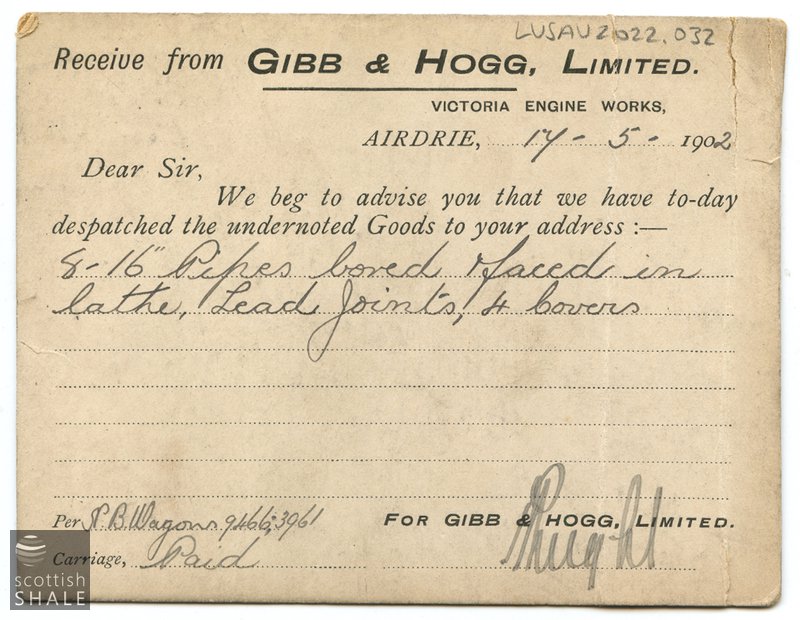 LUSAV2022.032
Receive from GIBB & HOGG, LIMITED.
VICTORIA ENGINE WORKS,
AIRDRIE, 17 - 5 - 1902
Dear Sir,
We beg to advise you that we have to-day
despatched the undernoted Goods to your address :—
8-16" Pipes bored & faced in
lathe, Lead Joints, 4 Covers
Per N.B. Wagons 9466; 3961
FOR GIBB & HOGG, LIMITED.
Carriage, Paid
scottish
SHALE